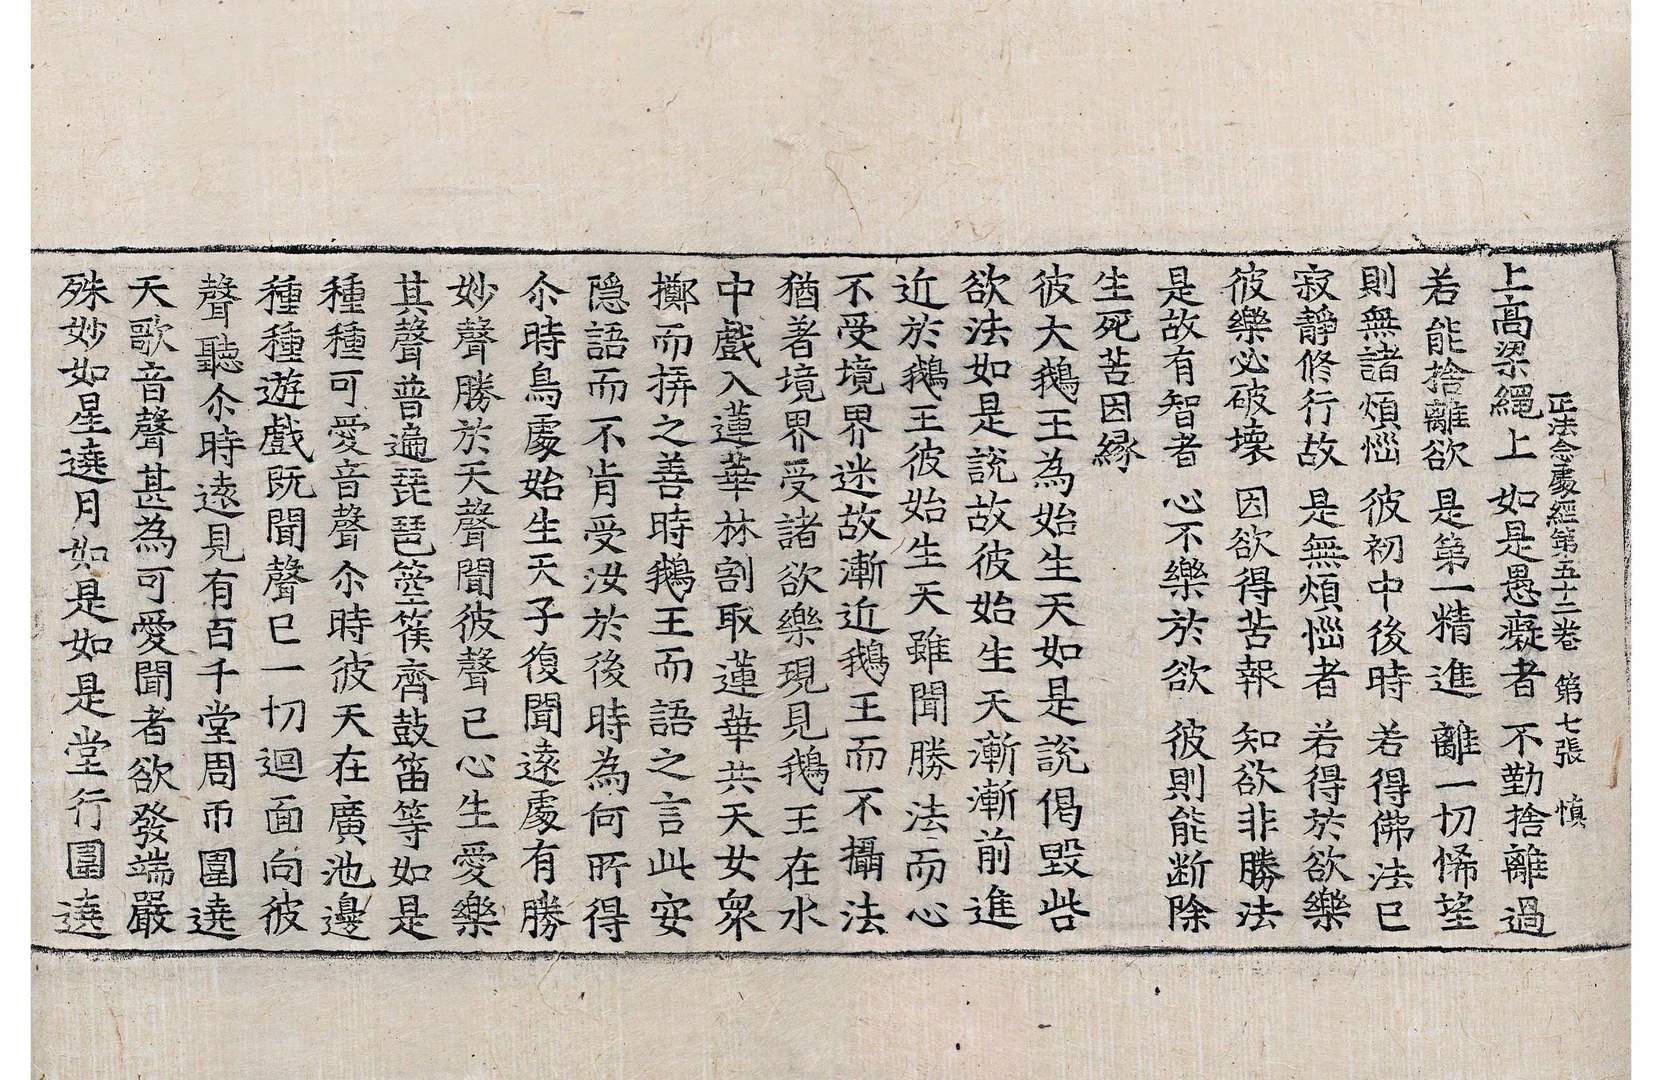 上高梁繩上 如是愚癡者 不勤捨離過
正法念處經第五十二卷 第七張 慎
若能捨離欲 是第一精進 離一切悕望
則無諸煩惱 彼初中後時 若得佛法已
寂靜修行故 是無煩惱者 若得於欲樂
彼樂必破壞 因欲得苦報 知欲非勝法
是故有智者 心不樂於欲 彼則能断除
生死苦因縁
彼大鵝王為始生天如是說偈毀呰
欲法如是說故彼始生天漸漸前進
近於鵝王彼始生天雖聞勝法而心
不受境界迷故漸近鵝王而不攝法
猶著境界受諸欲樂現見鵝王在水
中戲入蓮華林割取蓮華共天女衆
擲而挵之善時鵝王而語之言此安
隱語而不肯受汝於後時為何所得
尒時鳥處始生天子復聞遠處有勝
妙聲勝於天聲聞彼聲已心生愛樂
其聲普遍琵琶箜篌齊鼓笛等如是
種種可愛音聲尒時彼天在廣池邊
種種遊戲既聞聲已一切迴面向彼
聲聽尒時遠見有百千堂周帀圍遶
天歌音聲甚為可愛聞者欲發端嚴
殊妙如星遶月如是如是堂行圍遶